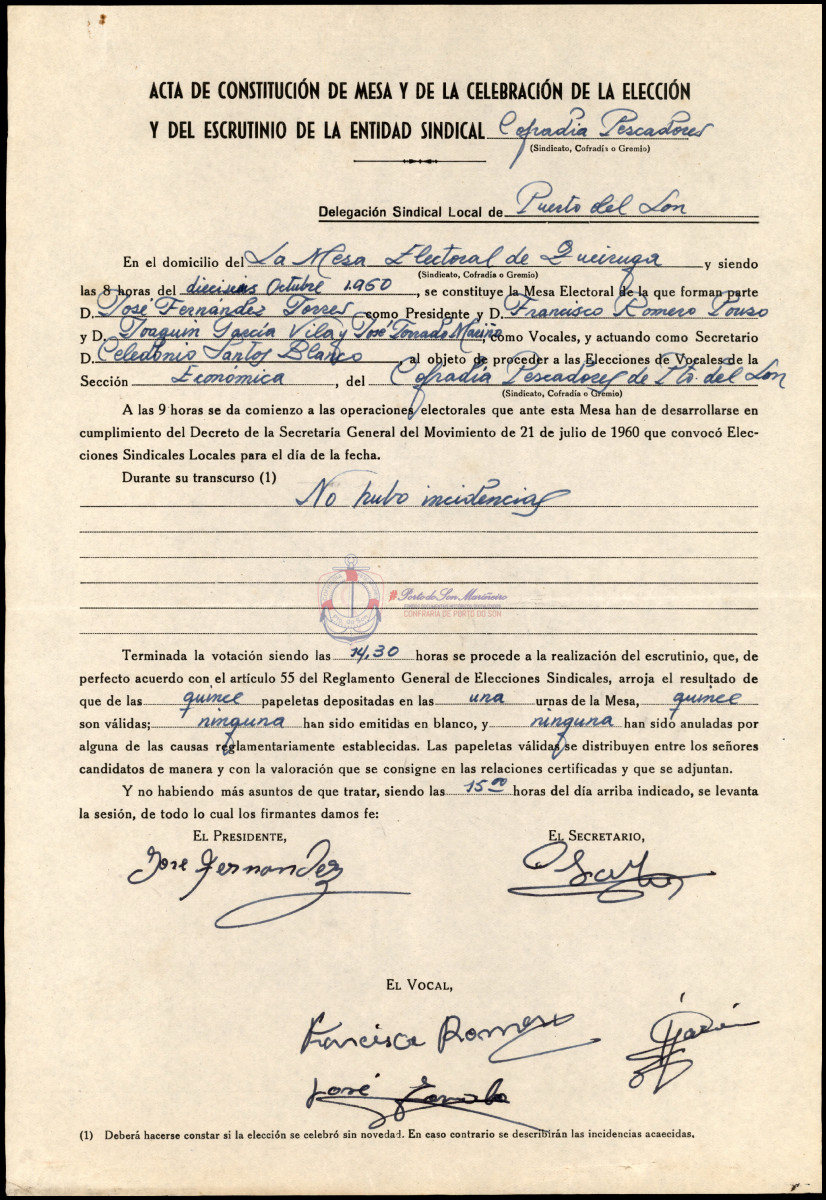 ACTA DE CONSTITUCIÓN DE MESA Y DE LA CELEBRACIÓN DE LA ELECCIÓN
Y DEL ESCRUTINIO DE LA ENTIDAD SINDICAL Cofradia Pescadores
(Sindicato, Cofradía o Gremio)
Delegación Sindical Local de Puerto del Son
En el domicilio del La Mesa Electoral de Queiruga y siendo
(Sindicato, Cofradía o Gremio)
las 8 horas del Octubre 1.960, se constituye la Mesa Electoral de la que forman parte
D. José Fernández Torres como Presidente y D. Francisco Romero Pouso
y D. Joaquin García Vila y José Tornado Maeiza, como Vocales, y actuando como Secretario
D. Celedonio Santos Blanco, al objeto de proceder a las Elecciones de Vocales de la
Sección Económica, del Cofradía Pescadores de Pto. del Son
(Sindicato, Cofradía o Gremio)
A las 9 horas se da comienzo a las operaciones electorales que ante esta Mesa han de desarrollarse en
cumplimiento del Decreto de la Secretaría General del Movimiento de 21 de julio de 1960 que convocó Elec-
ciones Sindicales Locales para el día de la fecha.
Durante su transcurso (1)
No hubo incidencias
#PortodoSon Mariñeiro
CONFRARÍA DE PORTO DO SON
Terminada la votación siendo las 14,30 horas se procede a la realización del escrutinio, que, de
perfecto acuerdo con el artículo 55 del Reglamento General de Elecciones Sindicales, arroja el resultado de
que de las quince papeletas depositadas en las una urnas de la Mesa, quince
son válidas; ninguna han sido emitidas en blanco, y ninguna han sido anuladas por
alguna de las causas reglamentariamente establecidas. Las papeletas válidas se distribuyen entre los señores
candidatos de manera y con la valoración que se consigne en las relaciones certificadas y que se adjuntan.
Y no habiendo más asuntos de que tratar, siendo las 15 00 horas del día arriba indicado, se levanta
la sesión, de todo lo cual los firmantes damos fe:
EL PRESIDENTE, EL SECRETARIO,
Jose Fernandez
EL VOCAL,
Francisco Romero
José
(1) Deberá hacerse constar si la elección se celebró sin novedad. En caso contrario se describirán las incidencias acaecidas.